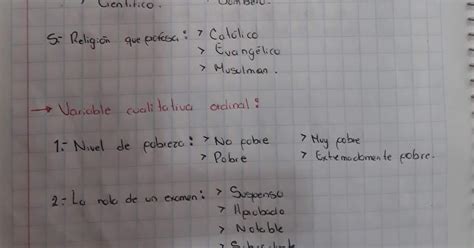 Científico.
Bombero.
5.- Religión que profesa: > Católico
> Evangélico
> Musulman.
→ Variable cualitativa ordinal:
1.- Nivel de pobreza: > No pobre > Muy pobre
> Pobre > Extremadamente pobre.
2.- La nota de un examen: > Suspenso
> Aprobado
> Notable
> Sobresaliente